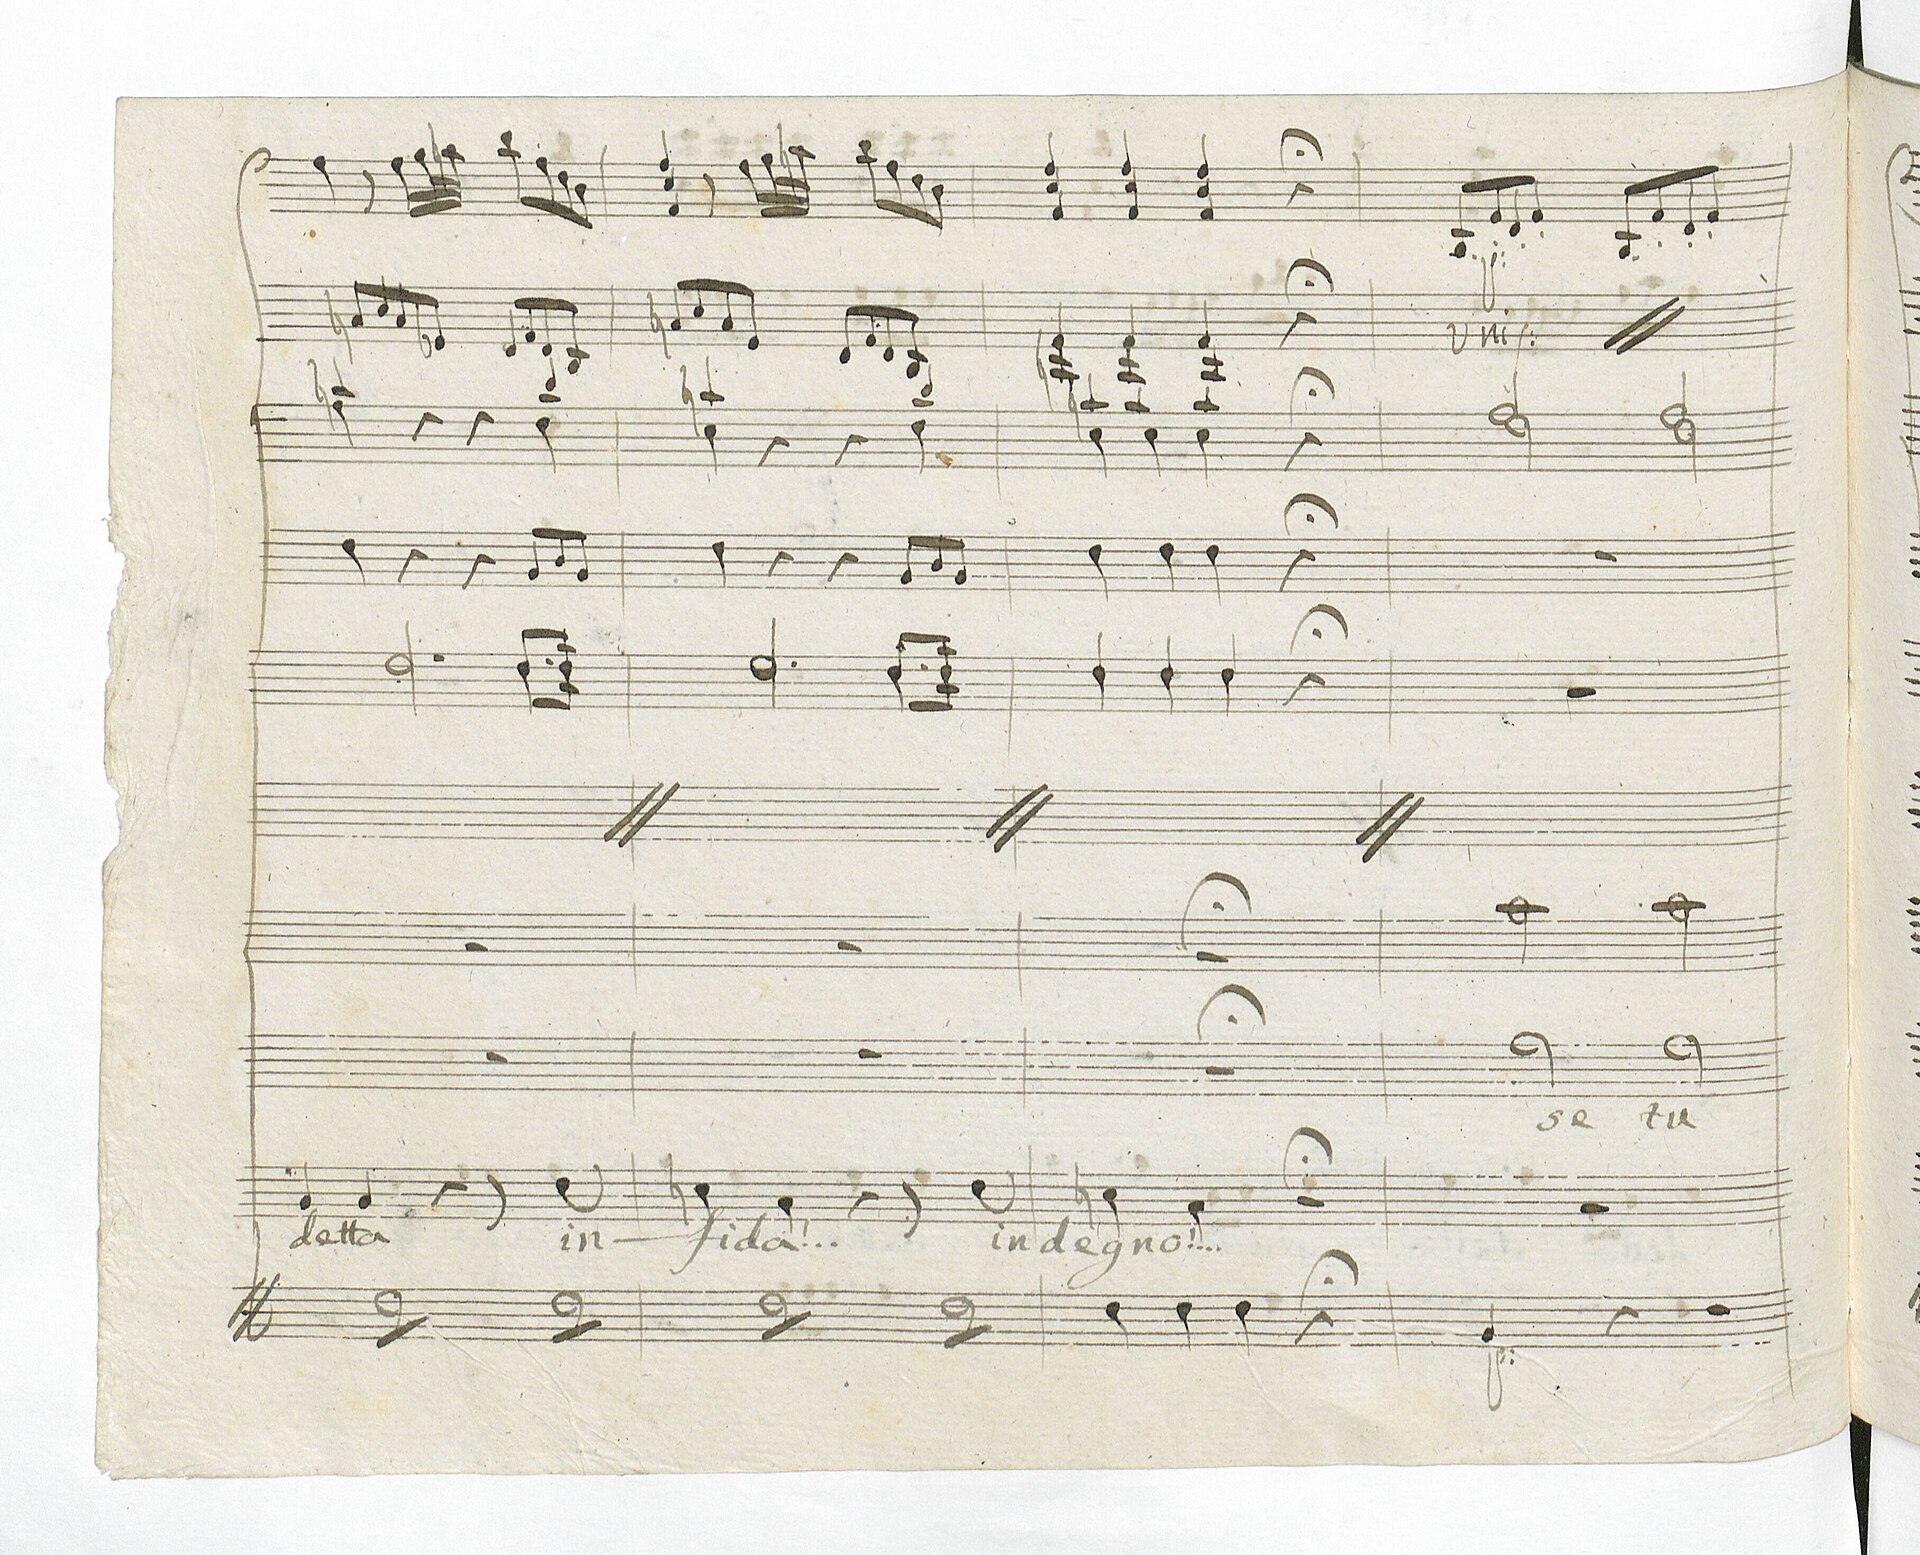 p:
unis:
se tu
detta in- fida!.. indegno!...
p: